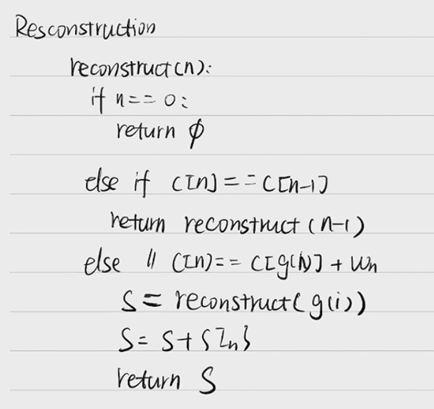 Resconstruction
reconstruct(n):
if n == 0:
return ϕ
else if C[n] == C[n-1]
return reconstruct (n-1)
else // C[n] == C[g(N)] + Wn
S = reconstruct( g(i))
S = S + {In}
return S